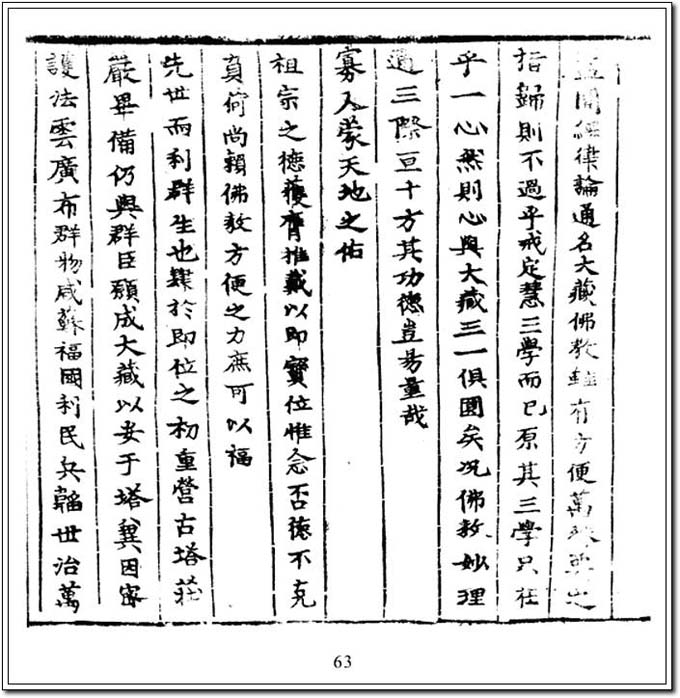 盖聞經律論通名大藏佛教雖有方便萬殊要之
指歸則不過乎戒定慧三學而已原其三學只在
乎一心然則心與大藏三一俱圓矣况佛教妙理
過三際亘十方其功德豈易量哉
寡人蒙天地之佑
祖宗之德獲膺推戴以即寶位惟念否德不克
負荷尚賴佛教方便之力庶可以福
先世而利群生也肆於即位之初重營古塔莊
嚴畢備仍與群臣願成大藏以安于塔冀因密
護法雲廣布群物咸蘇福國利民兵韜世治萬
63